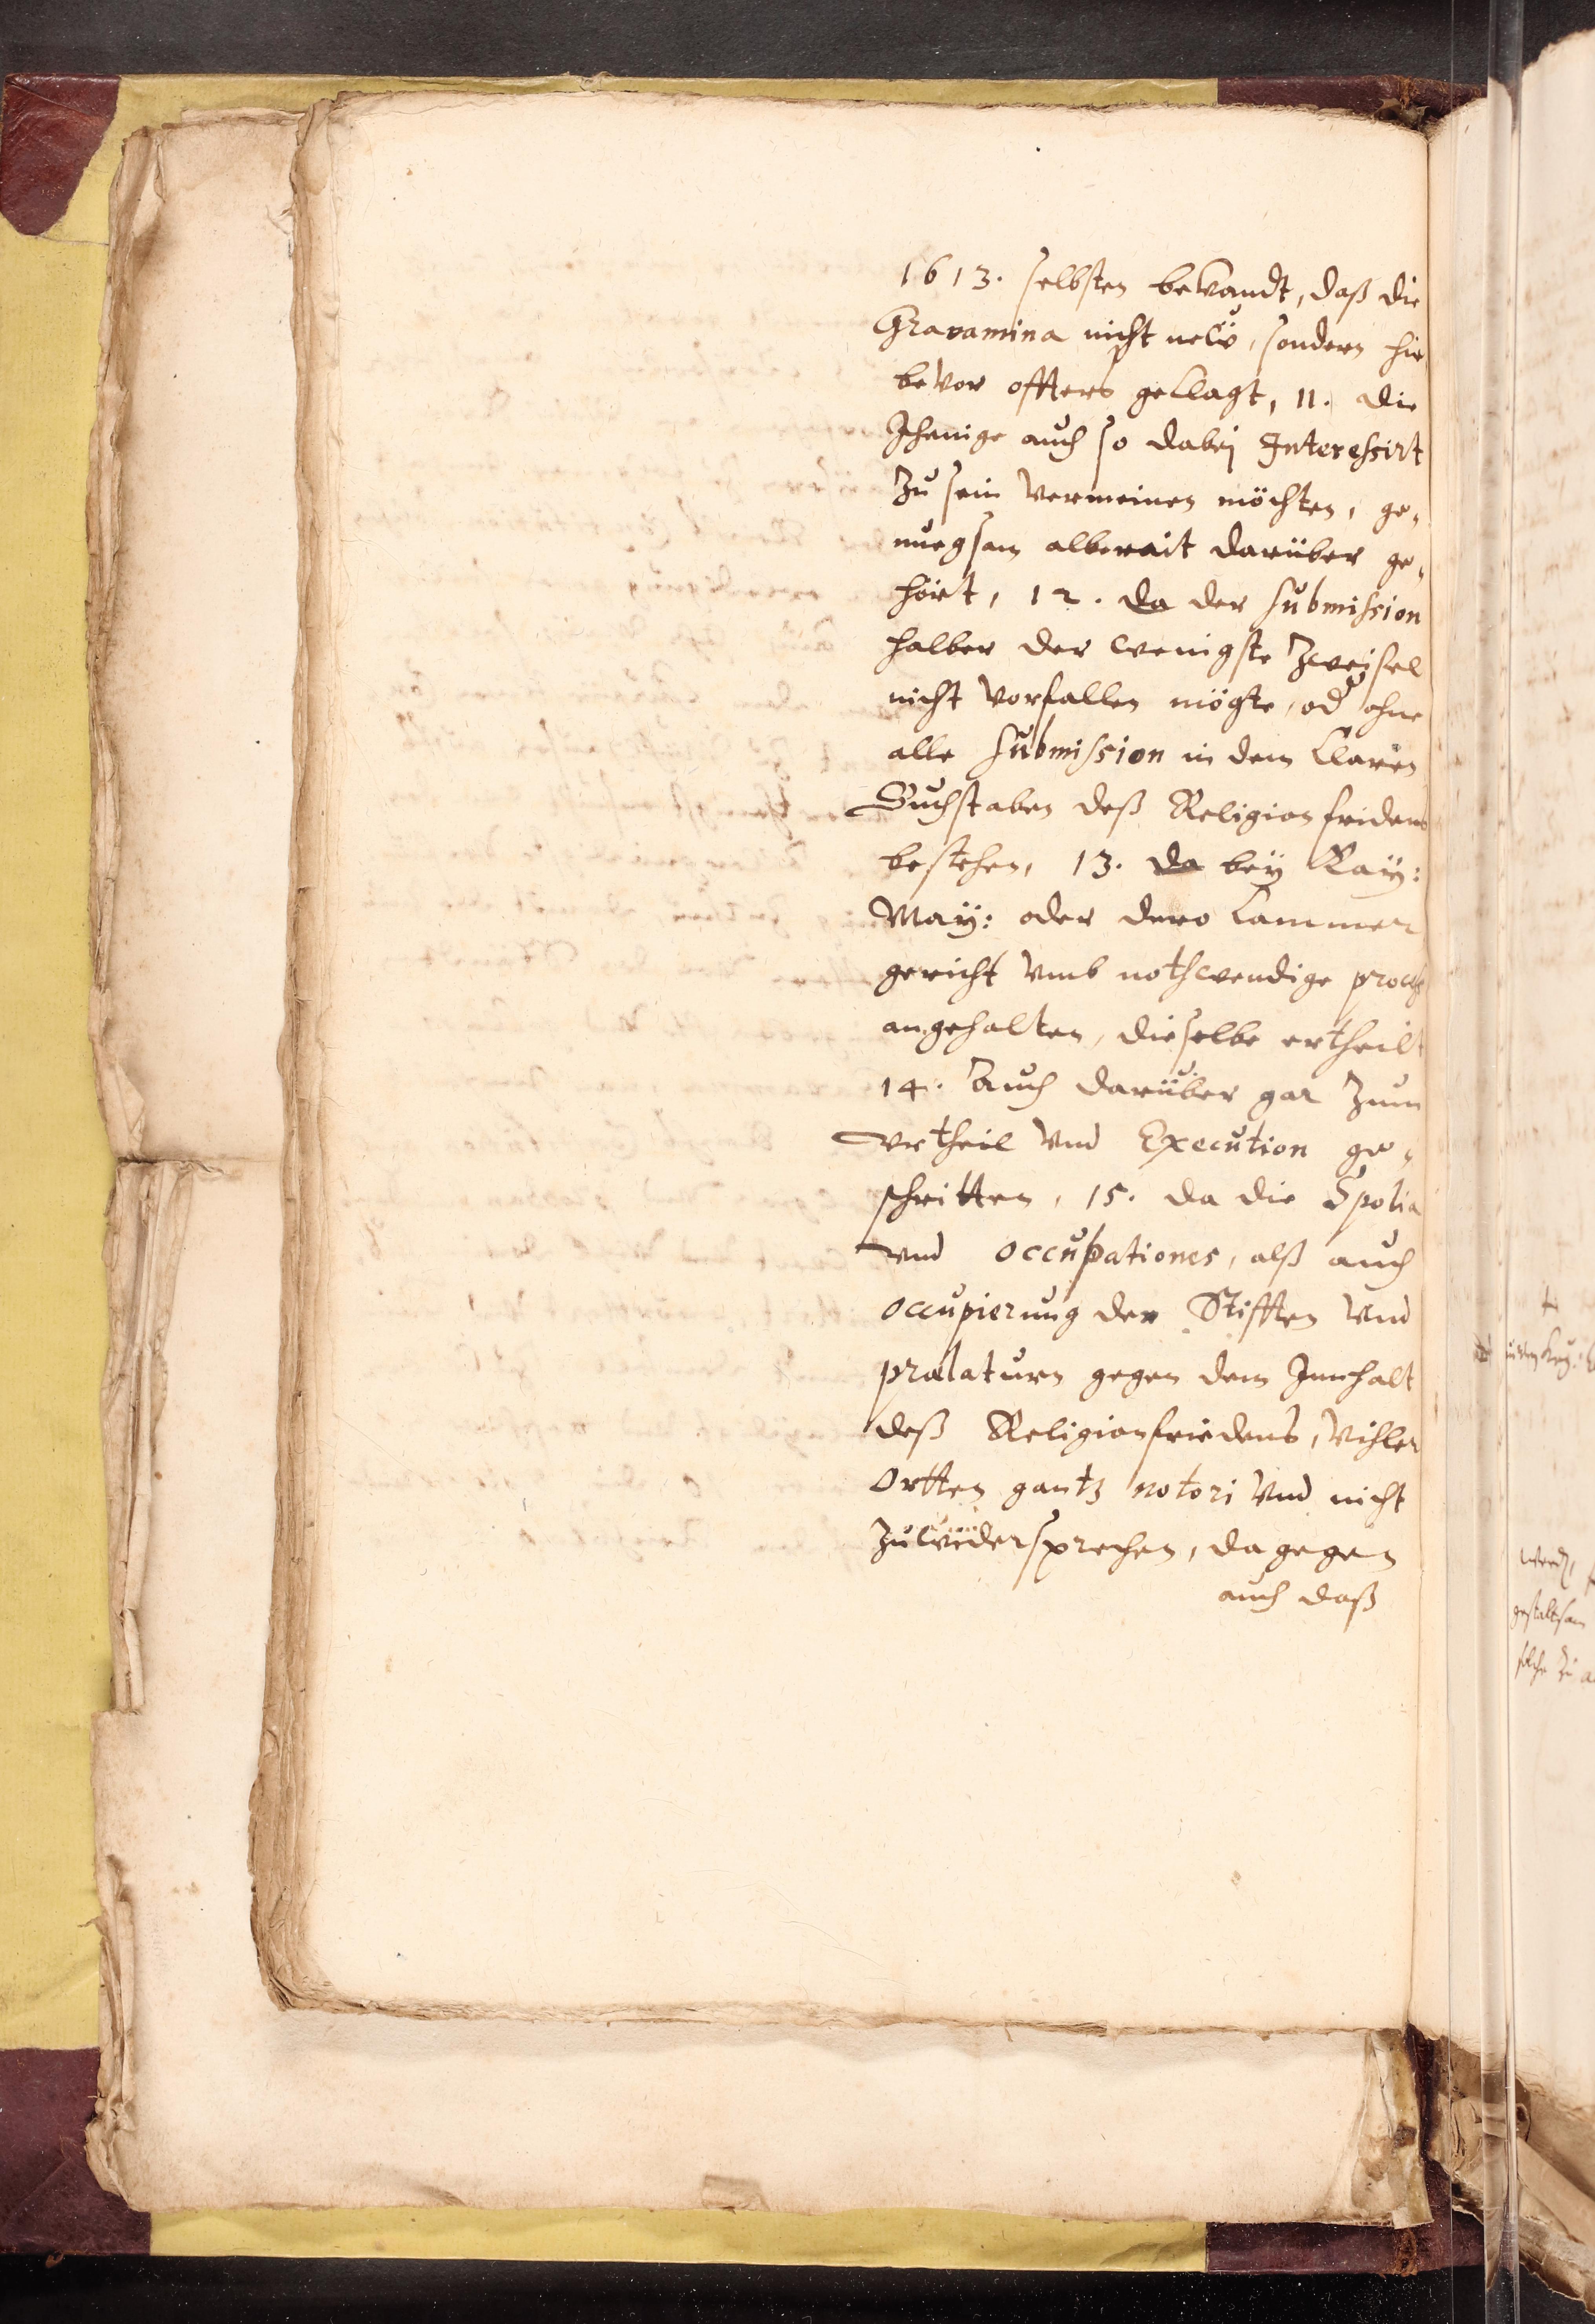 1613. selbsten bekandt, daß die
Gravamina nicht neẅ, sondern hie
bevor offters geclagt, 11. die
Jhenige auch so dabej Interessirt
zu sein vermeinen möchten, ge„
nuegsam albereit darüber ge„
hört, 12. da der submission
halber der wenigste zweifel
nicht vorfallen mögte, od ohne
alle submission in dem klaren
Buchstaben deß Religion fridens
bestehen, 13. da bey Kaÿ:
Maÿ: oder dero Cammer
gericht vmb nothwendige process
angehalten, dieselbe ertheilt
14. Auch darüber gar zum
vrtheil vnd Execution ge„
schritten, 15. da die Spolia
vnd occupationes, alß auch
occupierung der Stifften vnd
prælaturn gegen dem Jnnhalt
deß Religionfriedens, vihler
Ortten gantz notori vnd nicht
zuwidersprechen, dagegen
auch daß
werd,
gestaltsam
solche zu